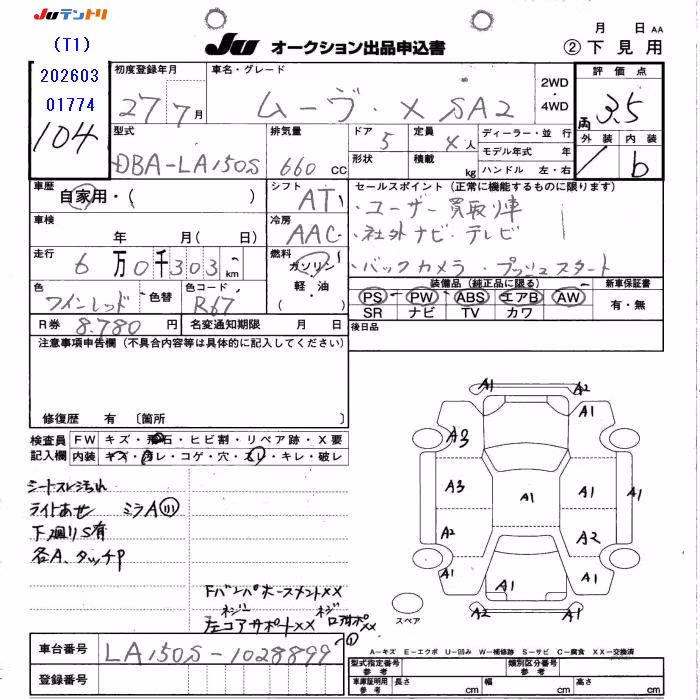 JUテントリ
(T1)
202603
01774
104
JU オークション出品申込書
月 日 AA
② 下見用
初度登録年月
27 7月
車名・グレード
ムーヴ・X SA2
2WD
・
4WD
評価点
3.5
両
外装 内装
b
型式
DBA-LA150S
排気量
660 cc
ドア
5
定員
4人
形状
積載
kg
ディーラー・並 行
モデル年式 年
ハンドル 左・右
車歴
自家用・( )
シフト
AT
セールスポイント (正常に機能するものに限ります)
・ユーザー買取り車
・社外ナビ・テレビ
・バックカメラ・プッシュスタート
車検
年 月( 日)
冷房
AAC
走行
6万0千303km
燃料
ガソリン
軽・油
( )
色
ワインレッド
色替
色コード
R67
装備品 (純正品に限る)
PS PW ABS エアB AW
SR ナビ TV カワ
新車保証書
有・無
R券 8.780円
名変通知期限 月 日
後日品
注意事項申告欄 (不具合内容等は具体的に記入してください)
修復歴 有 〔箇所 〕
検査員
記入欄
FW キズ・飛石・ヒビ割・リペア跡・X要
内装 キズ・汚レ・コゲ・穴・スレ・キレ・破レ
シートスレ汚れ
ライトあせ ミラA
下廻りS有
各A、タッチP
A1 A2
A1
A3
A3 A1 A1 A1
A2 A2
A1 A1 A1
A2 A1
スペア
車台番号
LA150S-1028899
登録番号
A-キズ E-エクボ U-凹み W-補修跡 S-サビ C-腐食 XX-交換済
型式指定番号
参考
類別区分番号
参考
車庫証明用
参考
長さ cm 幅 cm 高さ cm